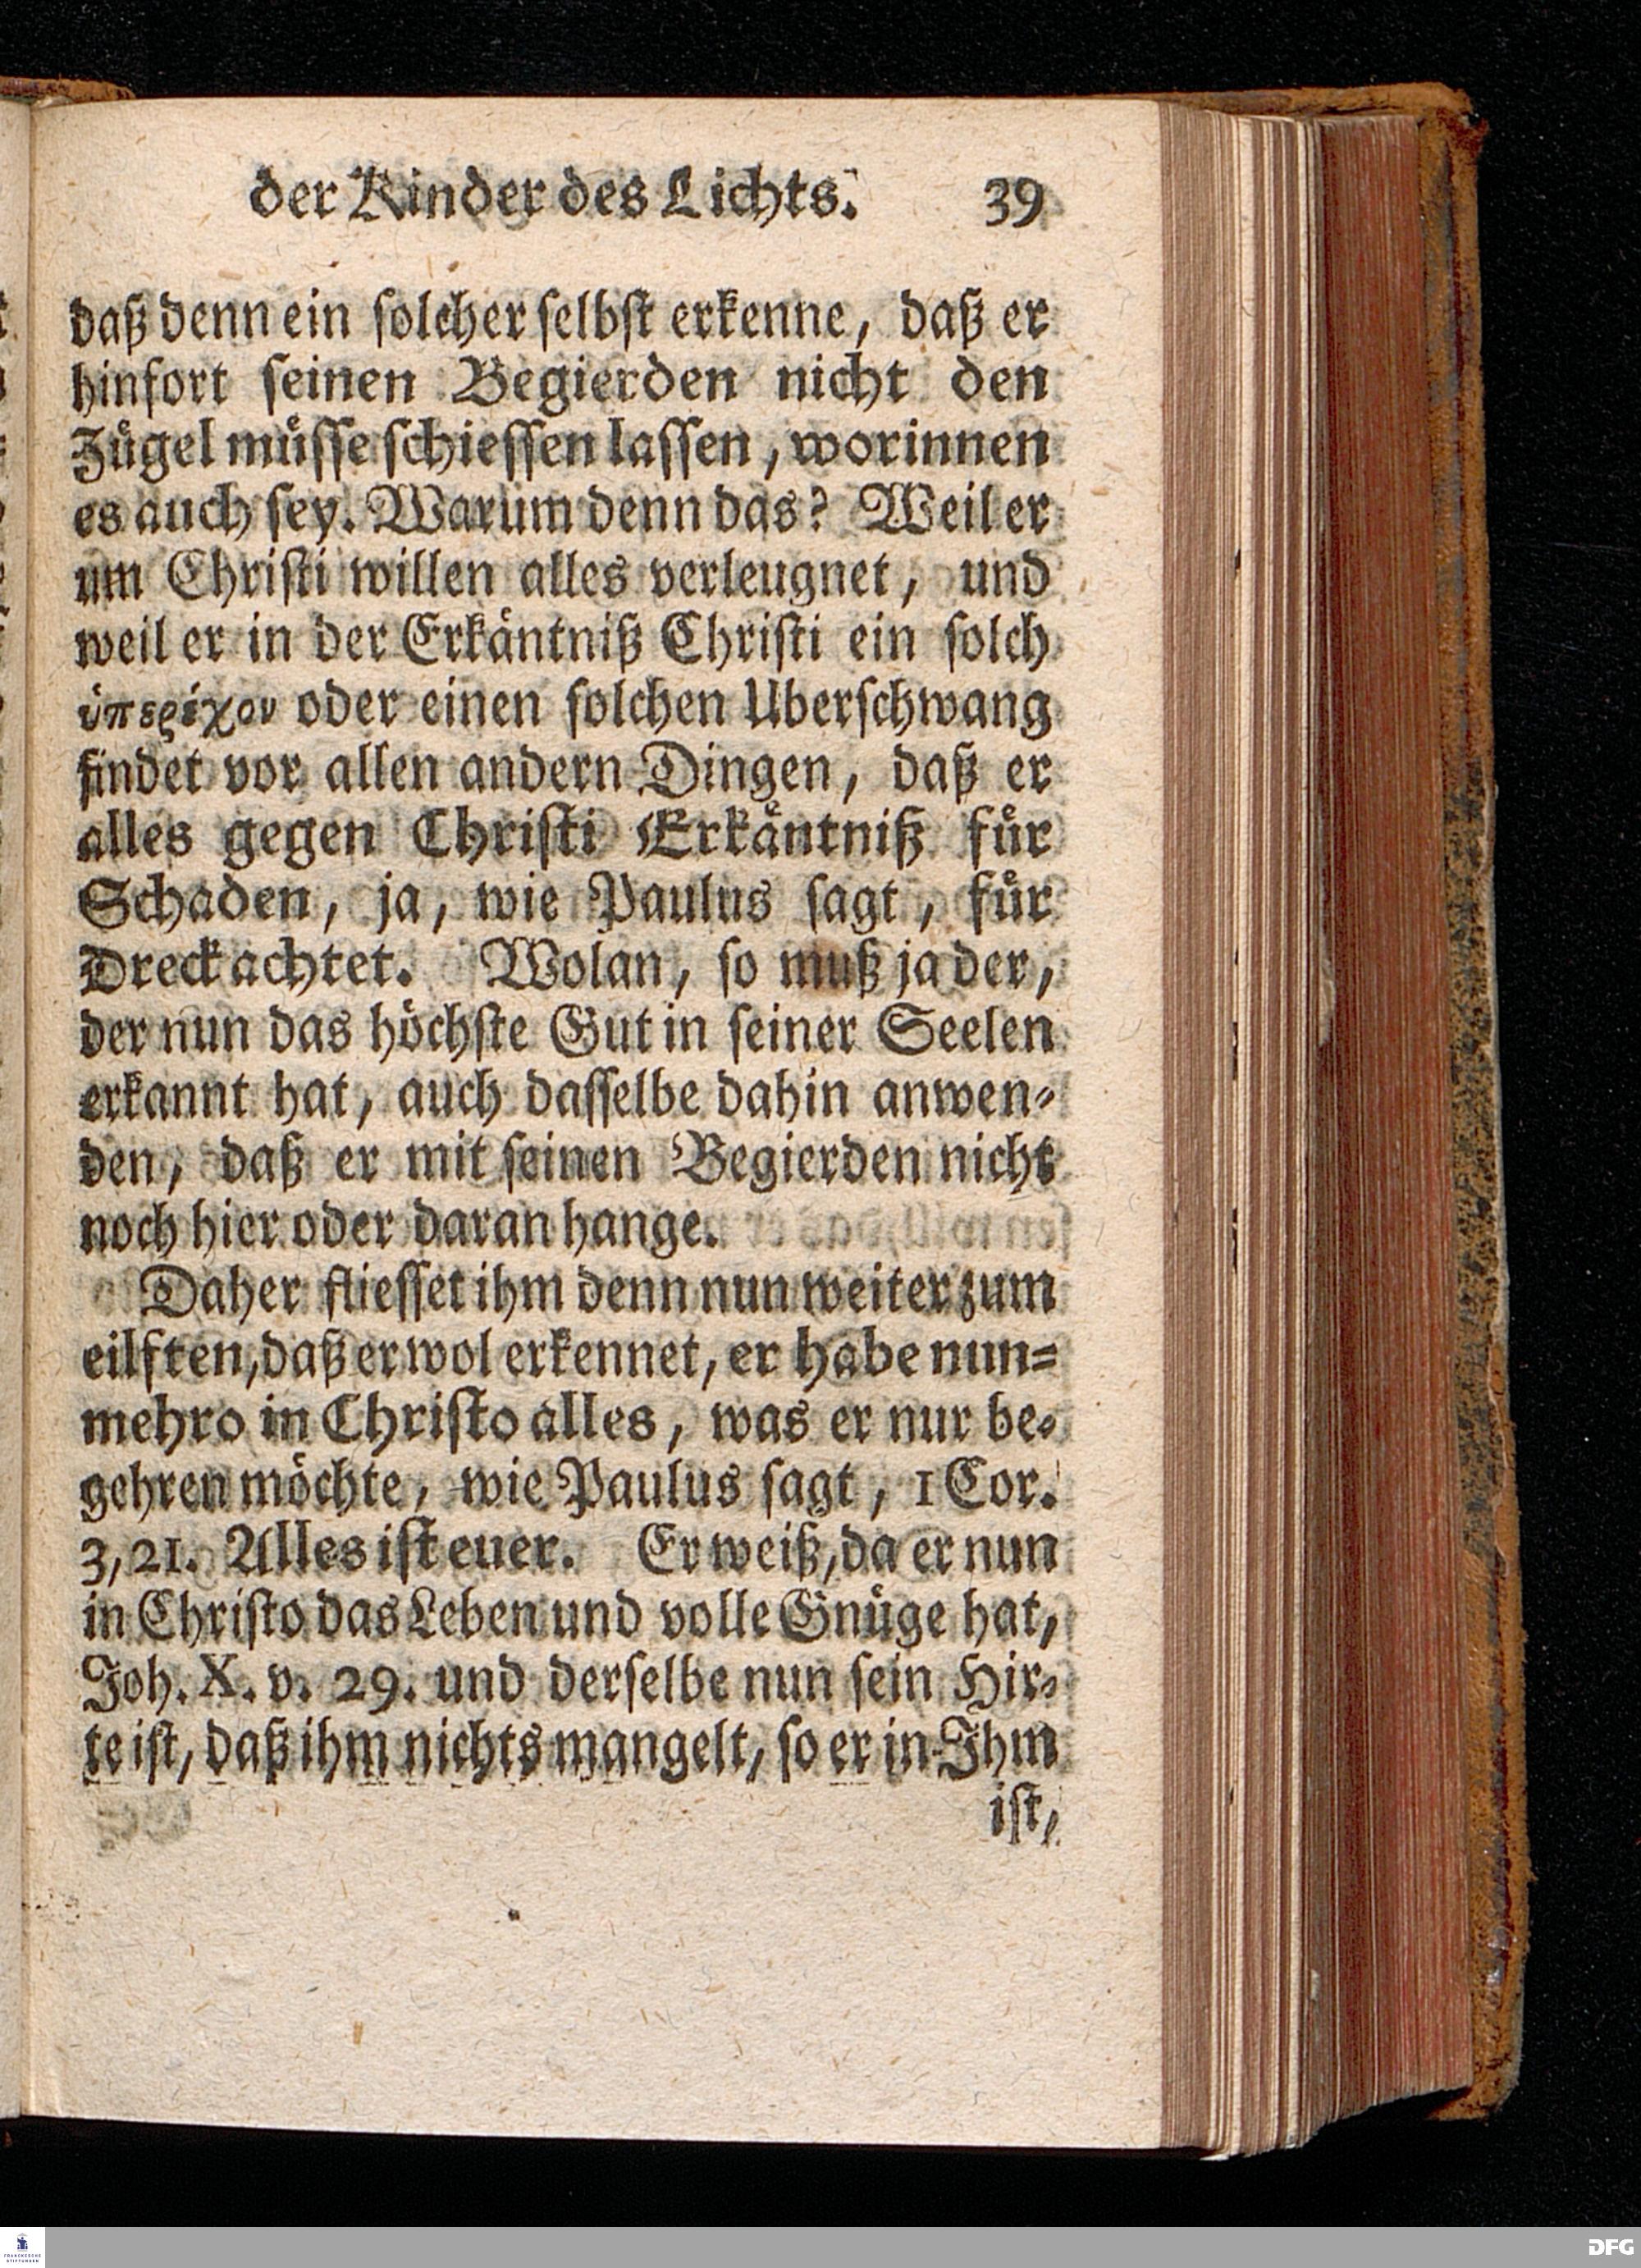 der Kinder des Lichts. 39
daß denn ein solcher selbst erkenne, daß er
hinfort seinen Begierden nicht den
Zügel müsse schiessen lassen, worinnen
es auch sey. Warum denn das? Weil er
um Christi willen alles verleugnet, und
weil er in der Erkäntniß Christi ein solch
ὑπερέχον oder einen solchen Uberschwang
findet vor allen andern Dingen, daß er
alles gegen Christi Erkäntniß für
Schaden, ja, wie Paulus sagt, für
Dreck achtet. Wolan, so muß ja der,
der nun das höchste Gut in seiner Seelen
erkannt hat, auch dasselbe dahin anwen-
den, daß er mit seinen Begierden nicht
noch hier oder daran hange.
Daher fliesset ihm denn nun weiter zum
eilften, daß er wol erkennet, er habe nun-
mehro in Christo alles, was er nur be-
gehren möchte, wie Paulus sagt, 1 Cor.
3, 21. Alles ist euer. Er weiß, da er nun
in Christo das Leben und volle Gnüge hat,
Joh. X. v. 29. und derselbe nun sein Hir-
te ist, daß ihm nichts mangelt, so er in Ihm
ist,
FRANCKESCHE
STIFTUNGEN
DFG